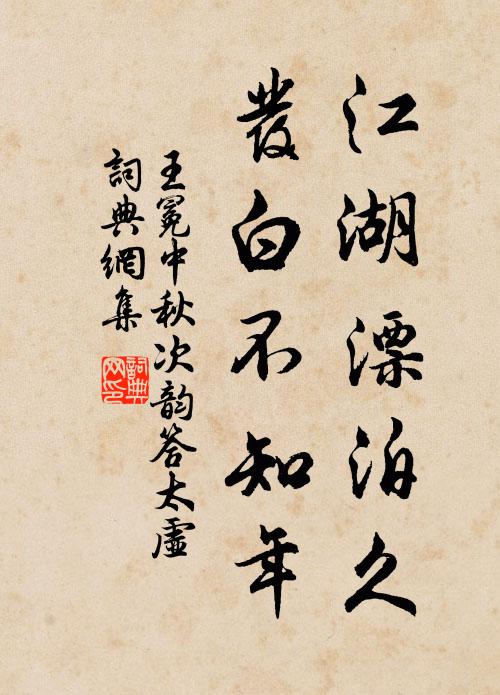 江湖漂泊久
發白不知年
王冕中秋次韵答太虛
詞典網集
詞典網印